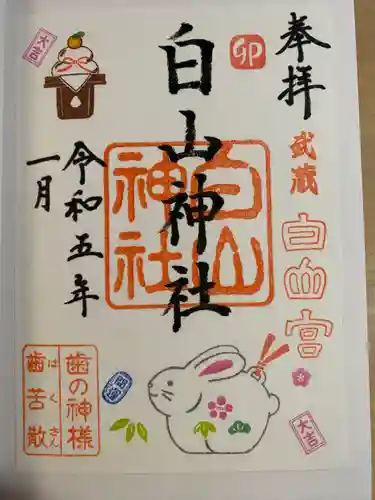 奉拝
武蔵
白山宮
卯
白山神社
白山
神社
令和五年
一月
大吉
歯の神様
歯苦散
はくさん
開運
大吉